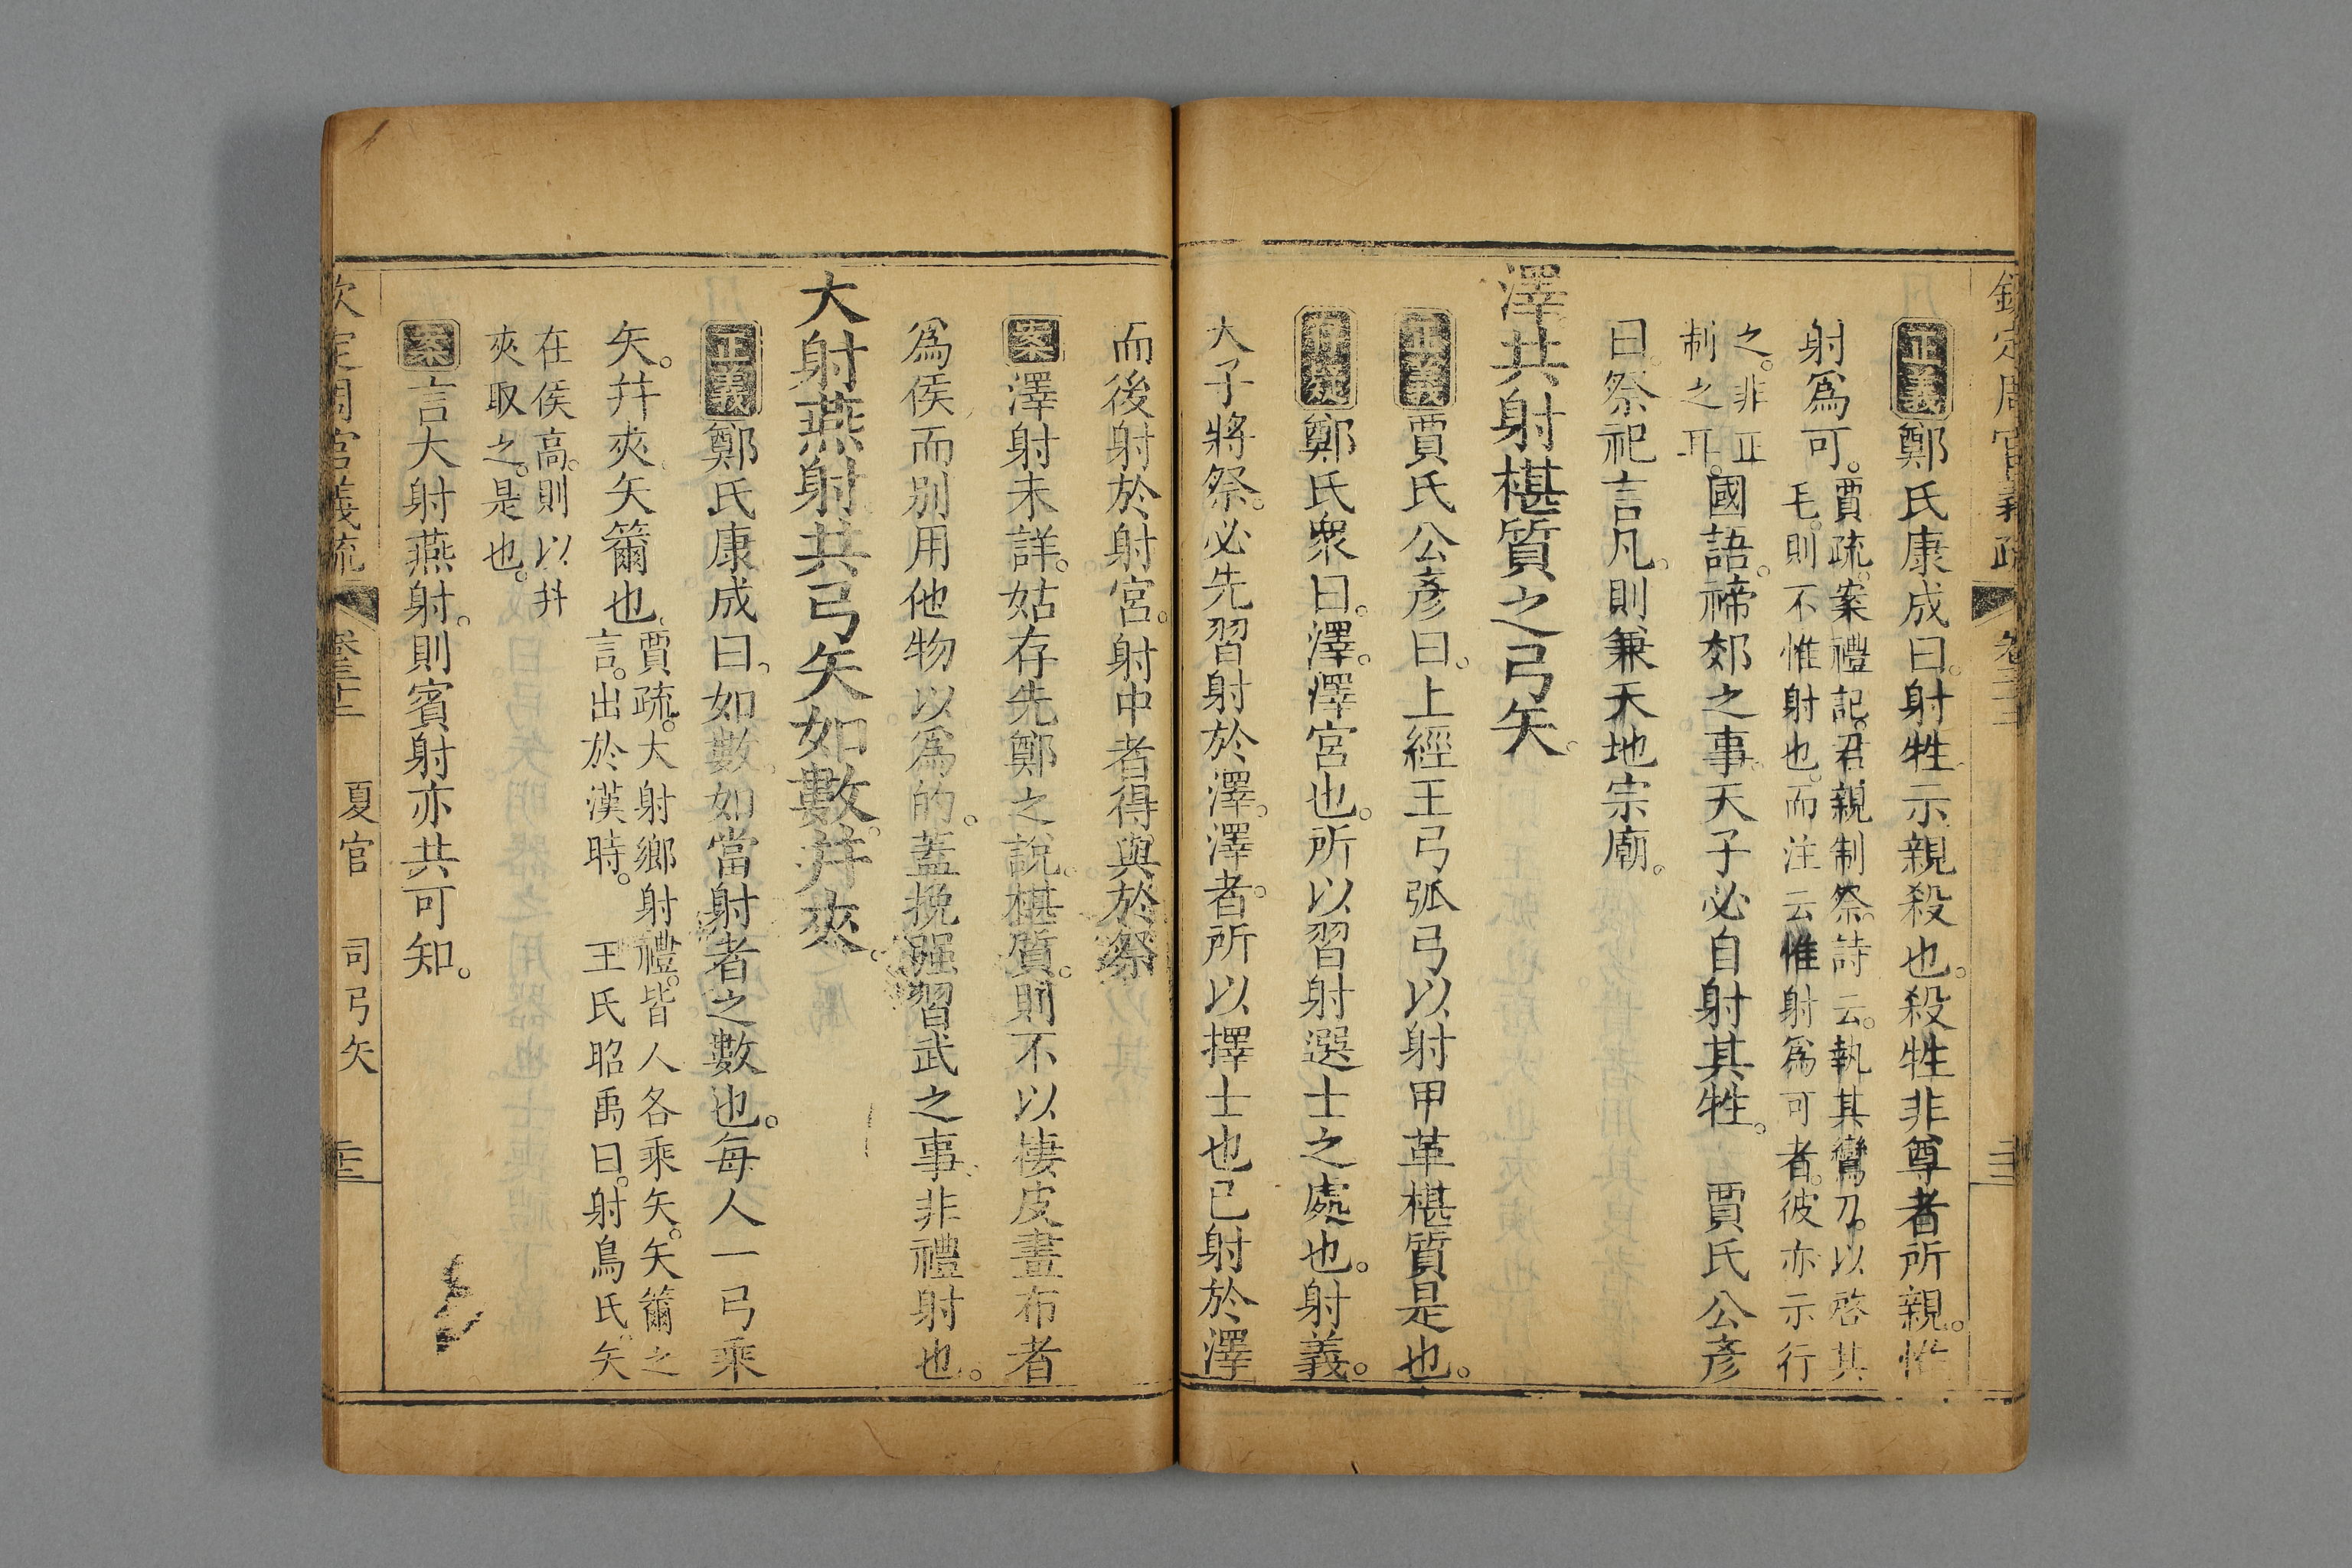 正義鄭氏康成曰。射牲示親殺也。殺牲非尊者所親。惟
射爲可。賈疏。案禮記。君親制祭。詩云。執其鸞刀。以啓其
毛。則不惟射也。而注云惟射爲可者。彼亦示行
之。非正
制之耳。國語。禘郊之事。天子必自射其牲。 賈氏公彥
曰。祭祀言凡。則兼天地宗廟。
澤共射椹質之弓矢。
正義賈氏公彥曰。上經王弓弧弓以射甲革椹質是也。
鄭氏衆曰。澤。澤宮也。所以習射選士之處也。射義。
天子將祭。必先習射於澤。澤者。所以擇士也已射於澤
而後射於射宮。射中者得與於祭
案澤射未詳。姑存先鄭之說。椹質。則不以棲皮畫布者
爲侯而別用他物以爲的。蓋挽强習武之事。非禮射也。
大射燕射共弓矢如數。幷夾。
正義鄭氏康成曰。如數。如當射者之數也。每人一弓乘
矢。幷夾。矢籋也。賈疏。大射鄉射禮。皆人各乘矢。矢籋之
言。出於漢時。 王氏昭禹曰。射鳥氏。矢
在侯高。則以幷
夾取之。是也。
案言大射燕射。則賓射亦共可知。
夏官 司弓矢